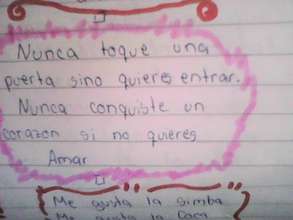 Nunca toque una
puerta sino quieres entrar.
Nunca conquiste un
corazon si no quieres
Amar
Me gusta la simba
Me gusta la